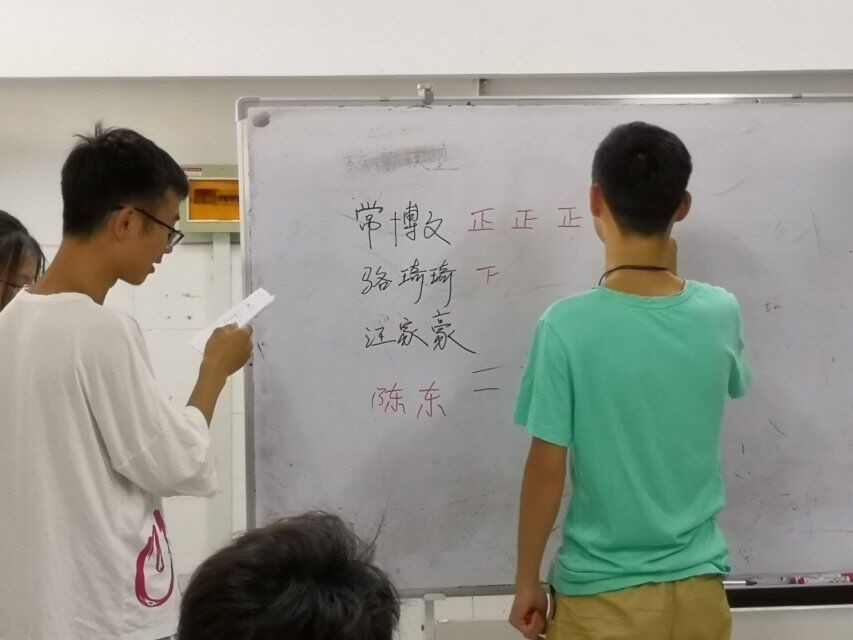 常博文 正 正 正
骆琦琦 下
汪家豪
陈东 二